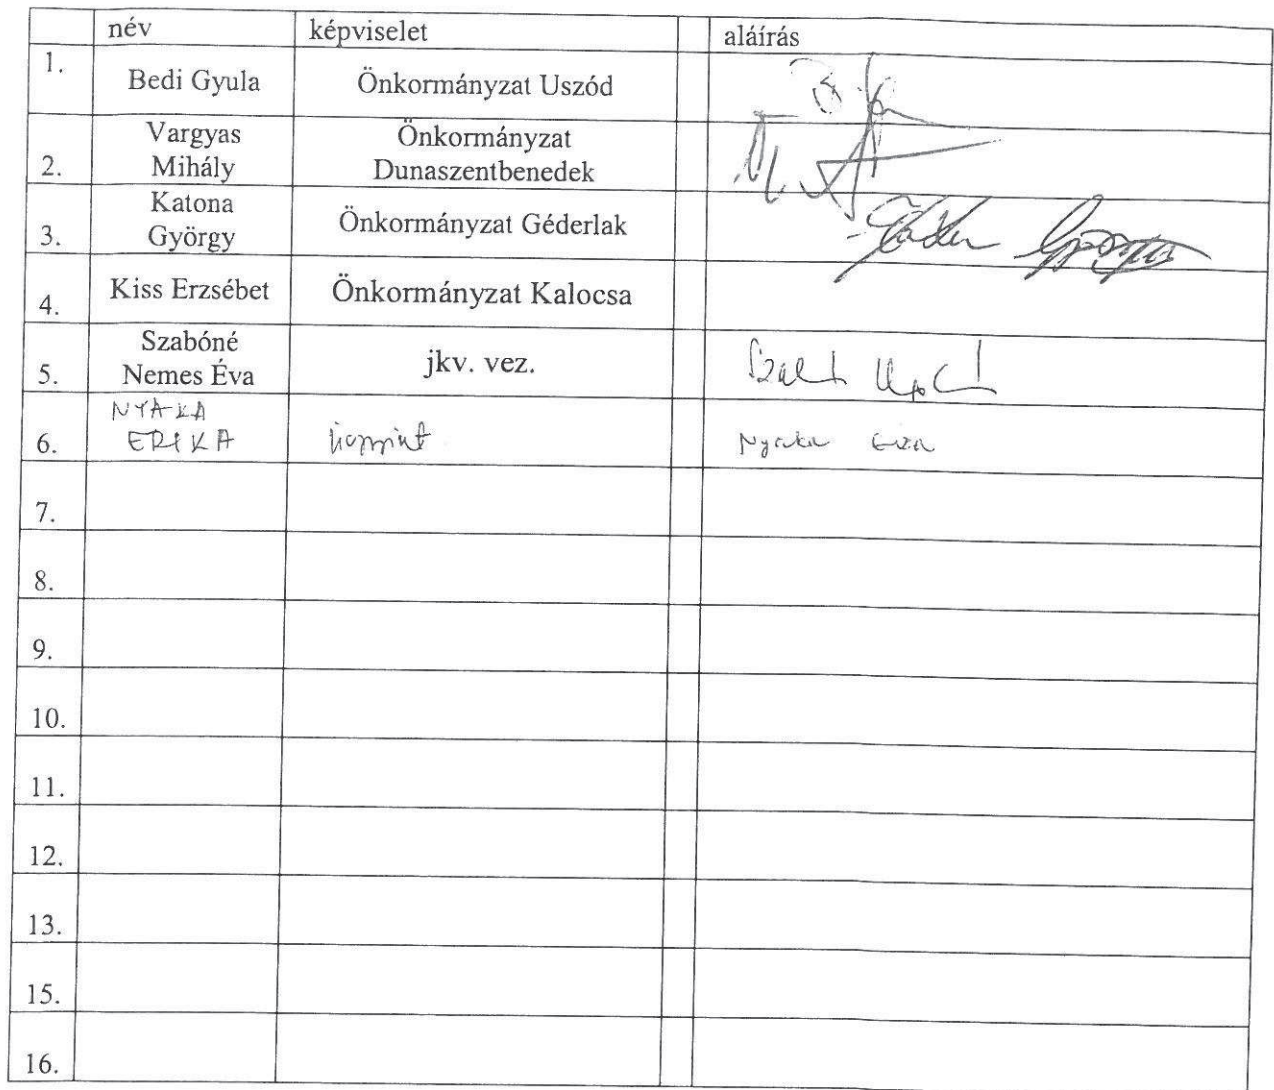 név képviselet aláírás
1. Bedi Gyula Önkormányzat Uszód
2. Vargyas Mihály Önkormányzat Dunaszentbenedek
3. Katona György Önkormányzat Géderlak
4. Kiss Erzsébet Önkormányzat Kalocsa
5. Szabóné Nemes Éva jkv. vez.
6. NYAKA ERIKA Nyaka
7.
8.
9.
10.
11.
12.
13.
15.
16.